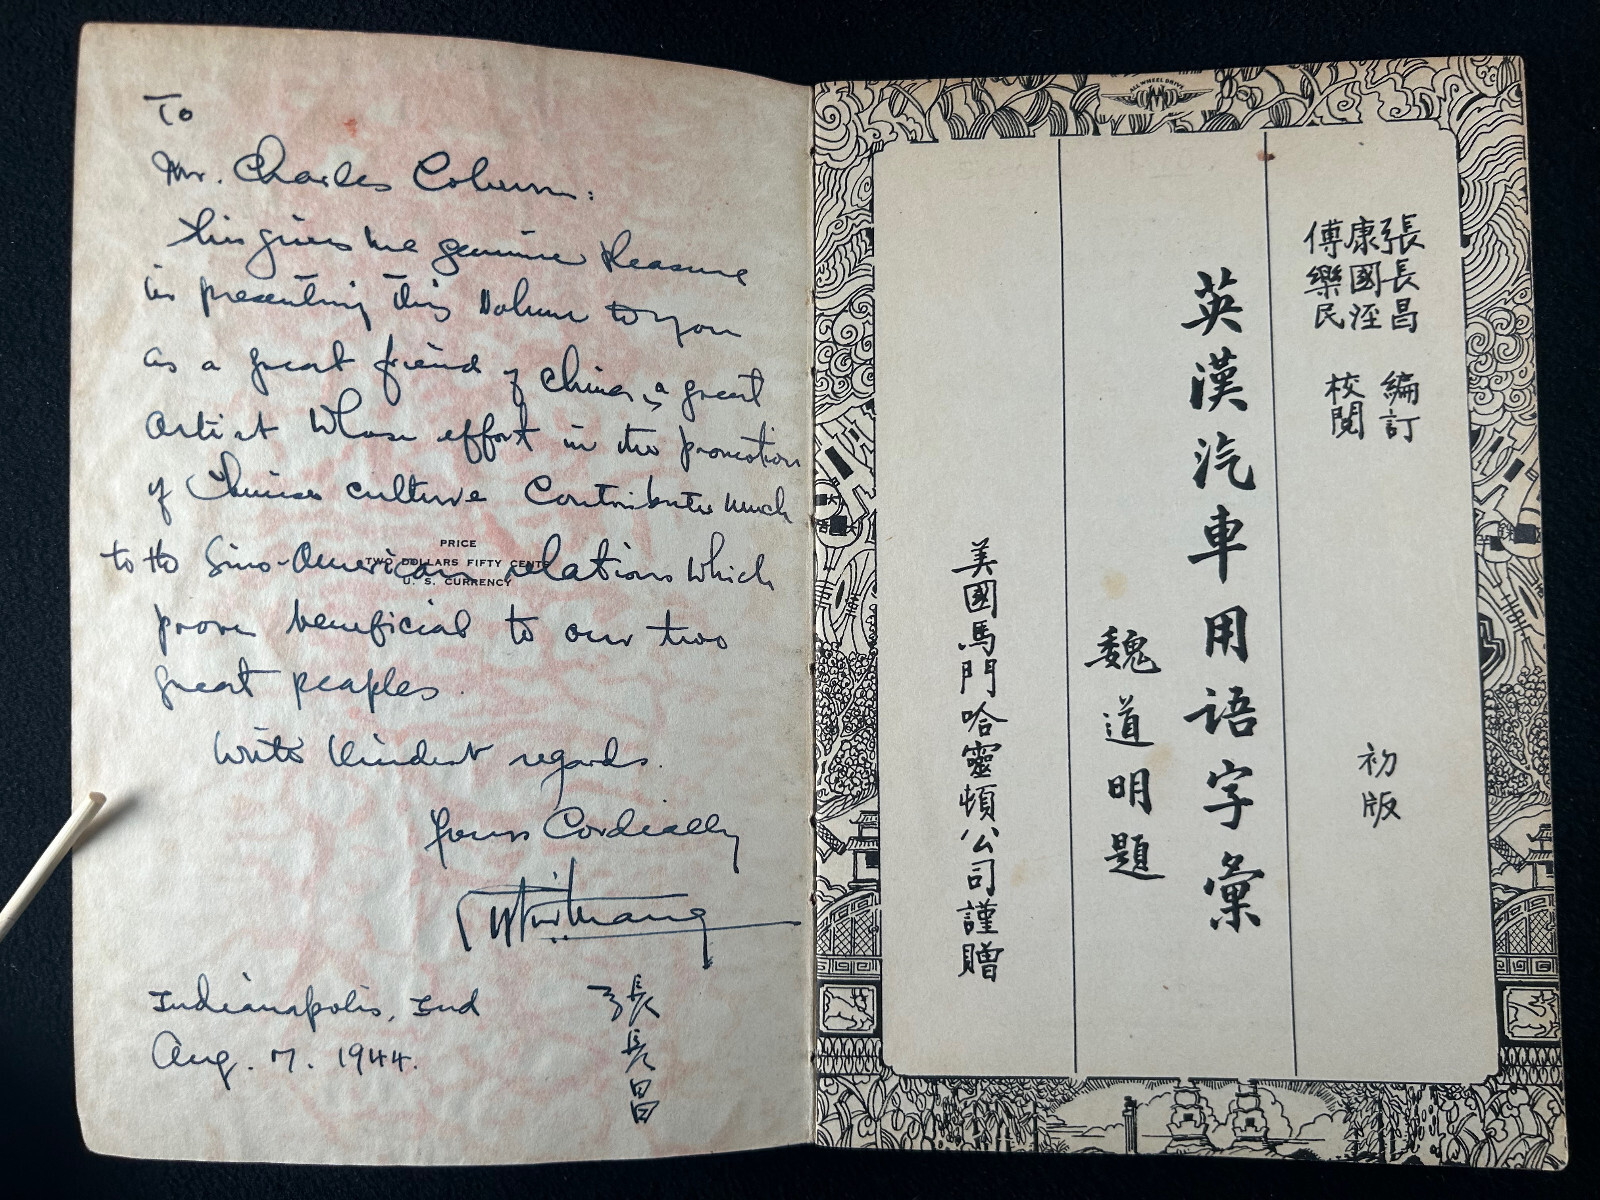 To
Mr. Charles Coburn:
This gives me genuine Pleasure
in presenting this Volume to you
as a great friend of China, a great
Artist Whose effort in the promotion
of Chinese culture Contributes much
to the Sino-American relations Which
proves beneficial to our two
great peoples.
With Kindest regards.
Yours Cordially
Indianapolis, Ind
Aug. 7. 1944.
張長昌
PRICE
TWO DOLLARS FIFTY CENTS
U. S. CURRENCY
ALL WHEEL DRIVE
張長昌 編訂
康國淫
傅樂民 校閱
初版
英漢汽車用語字彙
魏道明題
美國馬門哈靈頓公司謹贈